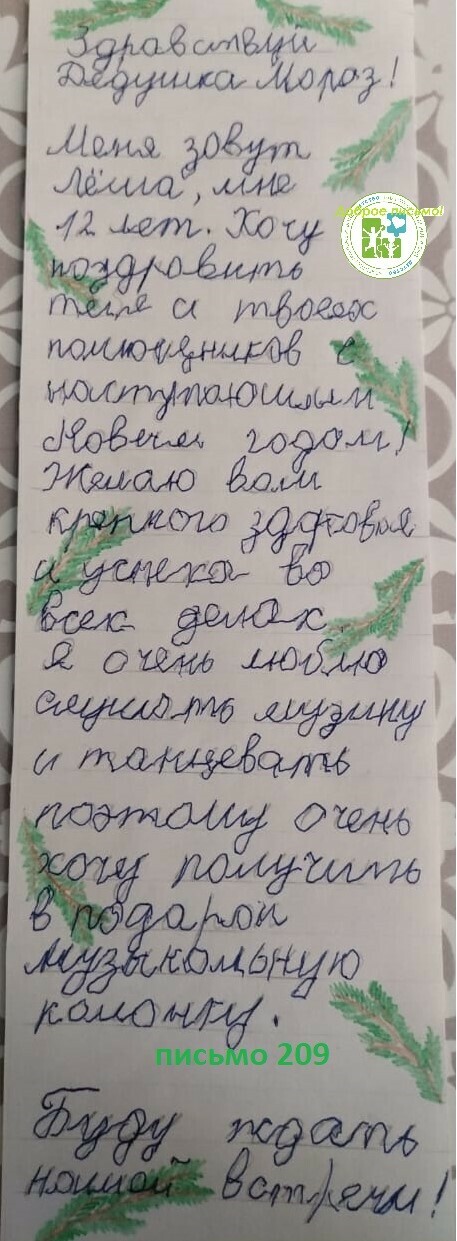 Здравствуй
Дедушка Мораз!
Меня зовут
Лёша, мне
12 лет. Хочу
доброе письмо!
поздравить
тебя и твоех
помющников с
наступающим
Новым годом!
Желаю вам
крепкого здровья
и успеха во
всех делах.
Я очень люблю
слушать музыку
и танцевать
поэтому очень
хочу получить
в подарок
музыкальную
колонку.
письмо 209
Буду ждать
нашой встречи!